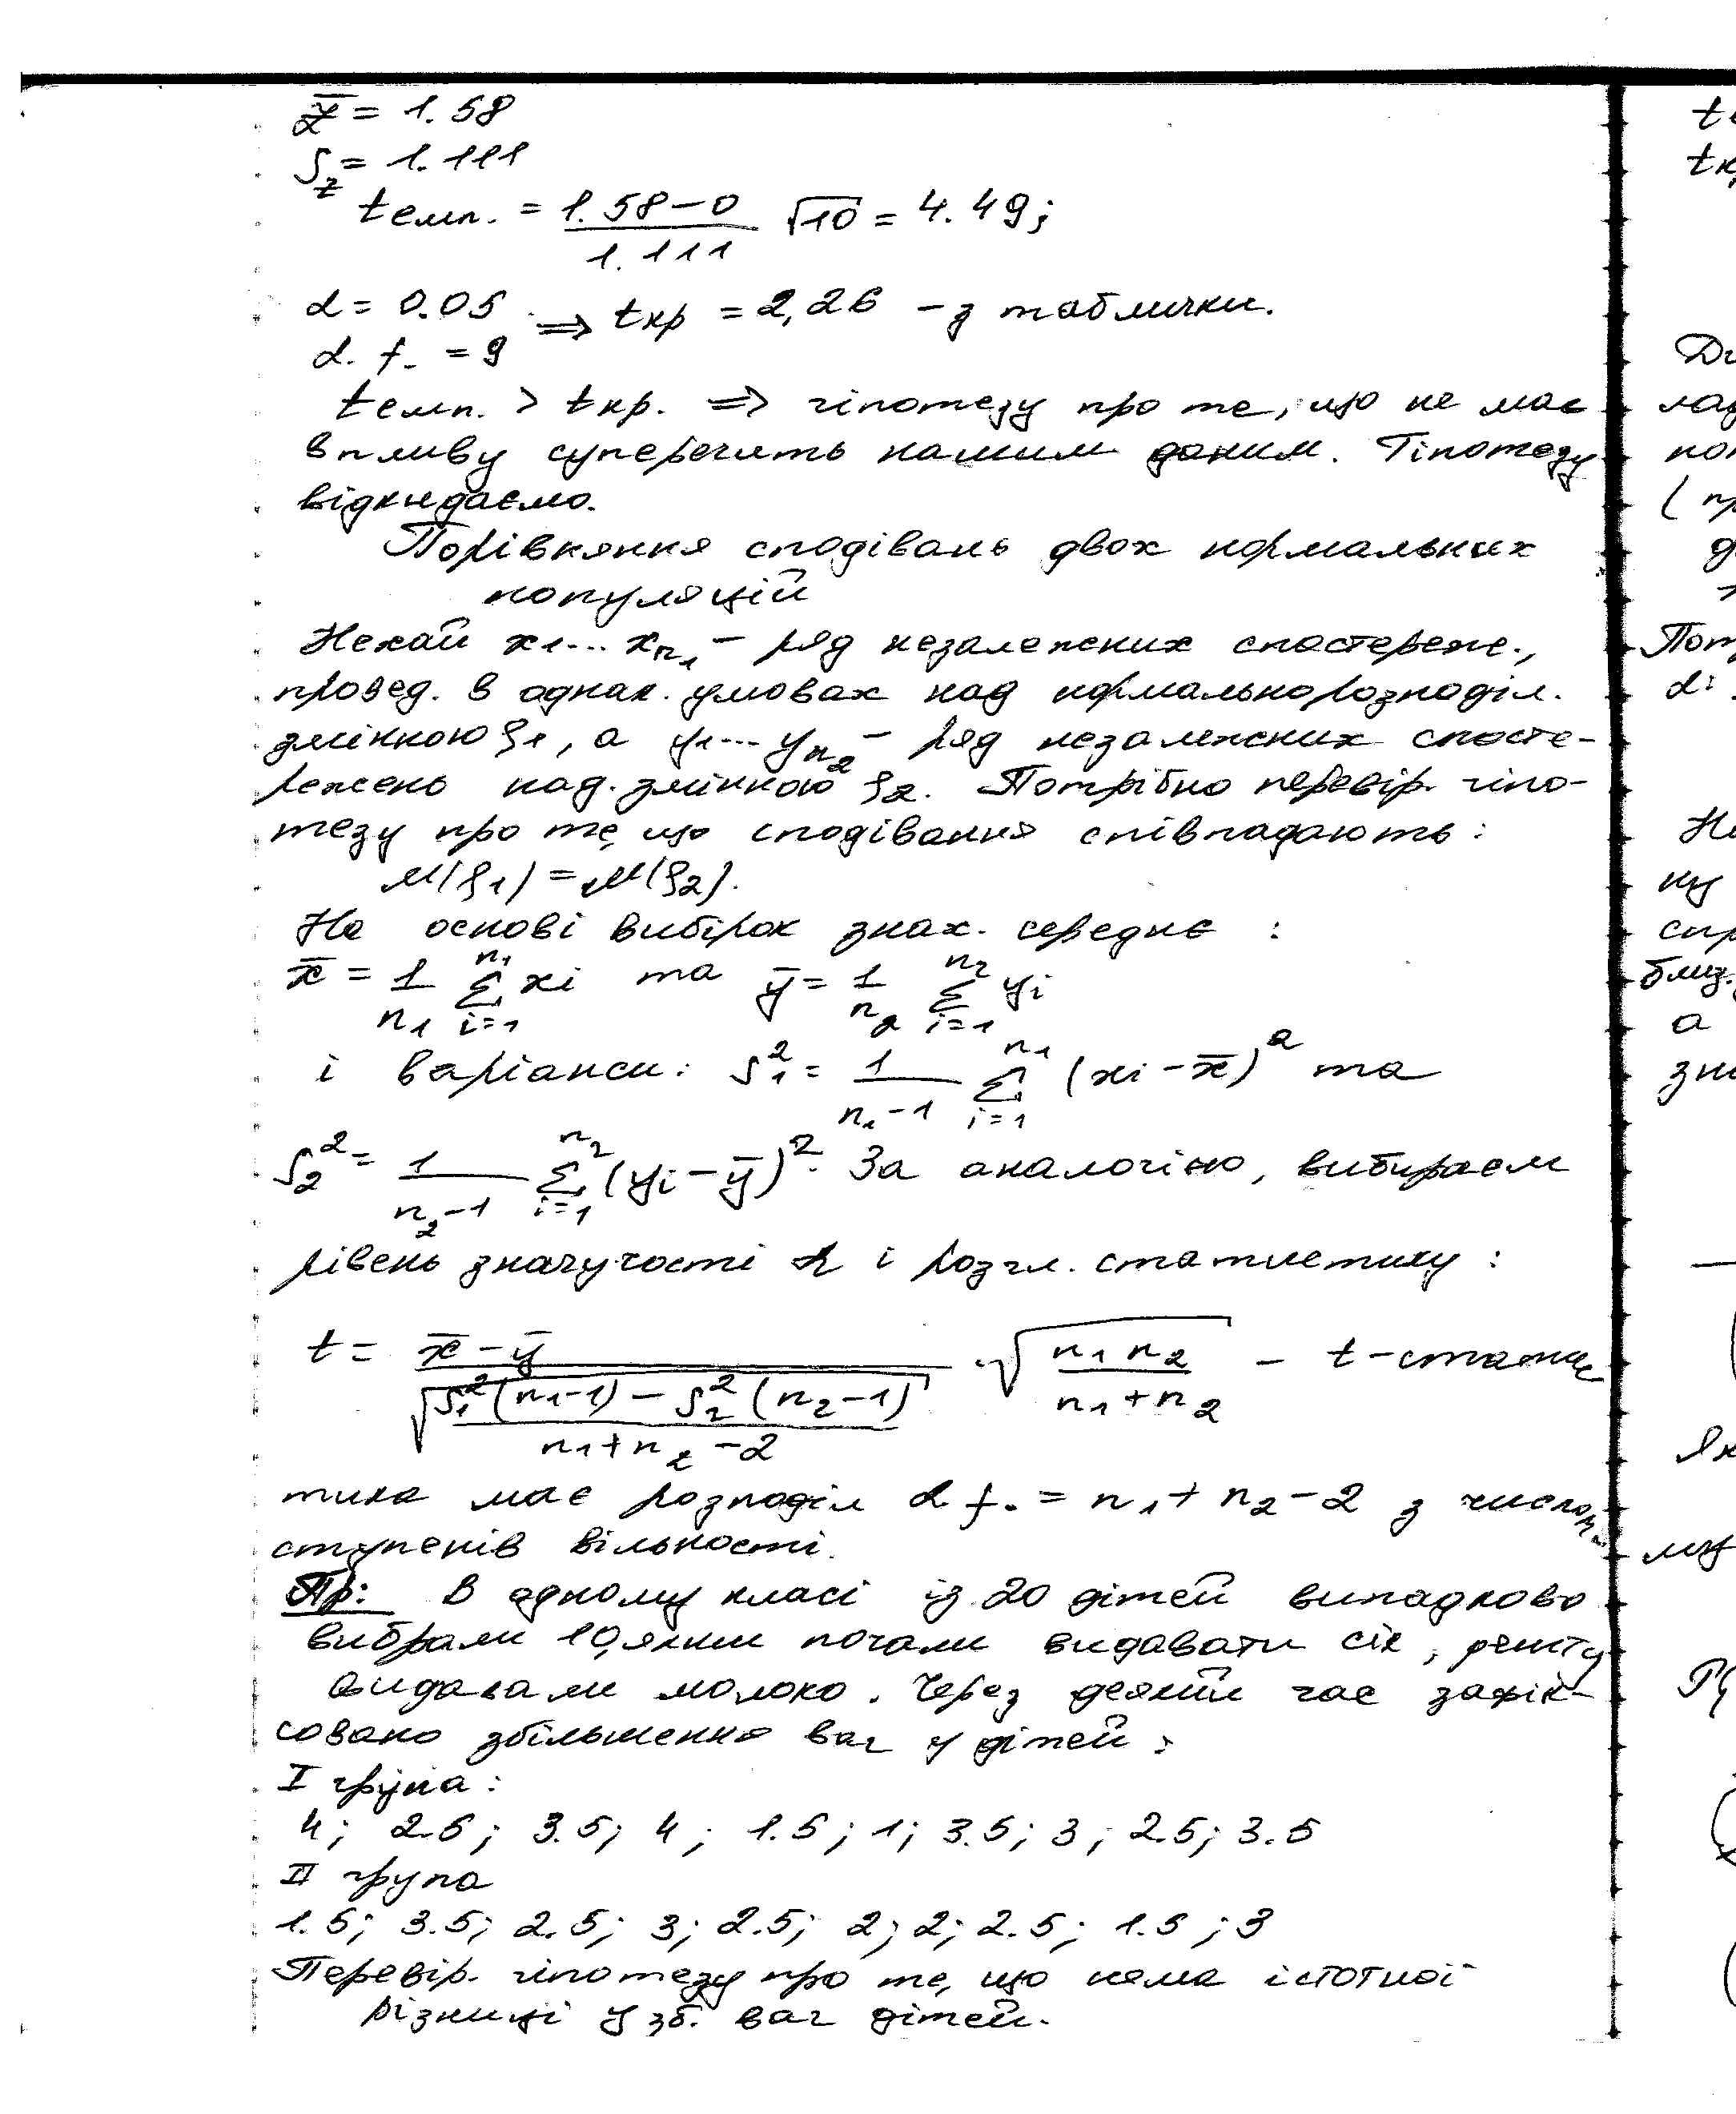 z̄ = 1.58
S_z = 1.111
t емп. = (1.58 – 0)/1.111 √10 = 4.49;
α = 0.05 ⇒ t кр = 2,26 – з таблички.
d. f. = 9
t емп. > t кр. ⇒ гіпотезу про те, що не має
впливу суперечить нашим даним. Гіпотезу
відкидаємо.
Порівняння сподівань двох нормальних
популяцій
Нехай x₁... xₙ₁ – ряд незалежних спостереж.,
провед. в однак. умовах над нормально розподіл.
змінною ξ₁, а y₁... yₙ₂ – ряд незалежних спосте-
режень над. змінною ξ₂. Потрібно перевір. гіпо-
тезу про те, що сподівання співпадають:
M(ξ₁) = M(ξ₂).
На основі вибірок знах. середнє :
x̄ = 1/n₁ Σ_{i=1}^{n₁} xi та ȳ = 1/n₂ Σ_{i=1}^{n₂} yi
і варіанси: S₁² = 1/(n₁-1) Σ_{i=1}^{n₁} (xi – x̄)² та
S₂² = 1/(n₂-1) Σ_{i=1}^{n₂} (yi – ȳ)². За аналогією, вибираєм
рівень значучості α і розгл. статистику :
t = (x̄ – ȳ)/√((S₁²(n₁-1) – S₂²(n₂-1))/(n₁+n₂-2)) · √(n₁n₂/(n₁+n₂)) – t-статис
тика має розподіл d. f. = n₁ + n₂ – 2 з числом
ступенів вільності.
Пр: В одному класі із 20 дітей випадково
вибрали 10, яким почали видавати сік, решту
видавали молоко. Через деякий час зафік-
совано збільшення ваг у дітей :
I група :
4; 2.5; 3.5; 4; 1.5; 1; 3.5; 3; 2.5; 3.5
II група
1.5; 3.5; 2.5; 3; 2.5; 2; 2; 2.5; 1.5; 3
Перевір. гіпотезу про те, що нема істотної
різниці у зб. ваг дітей.